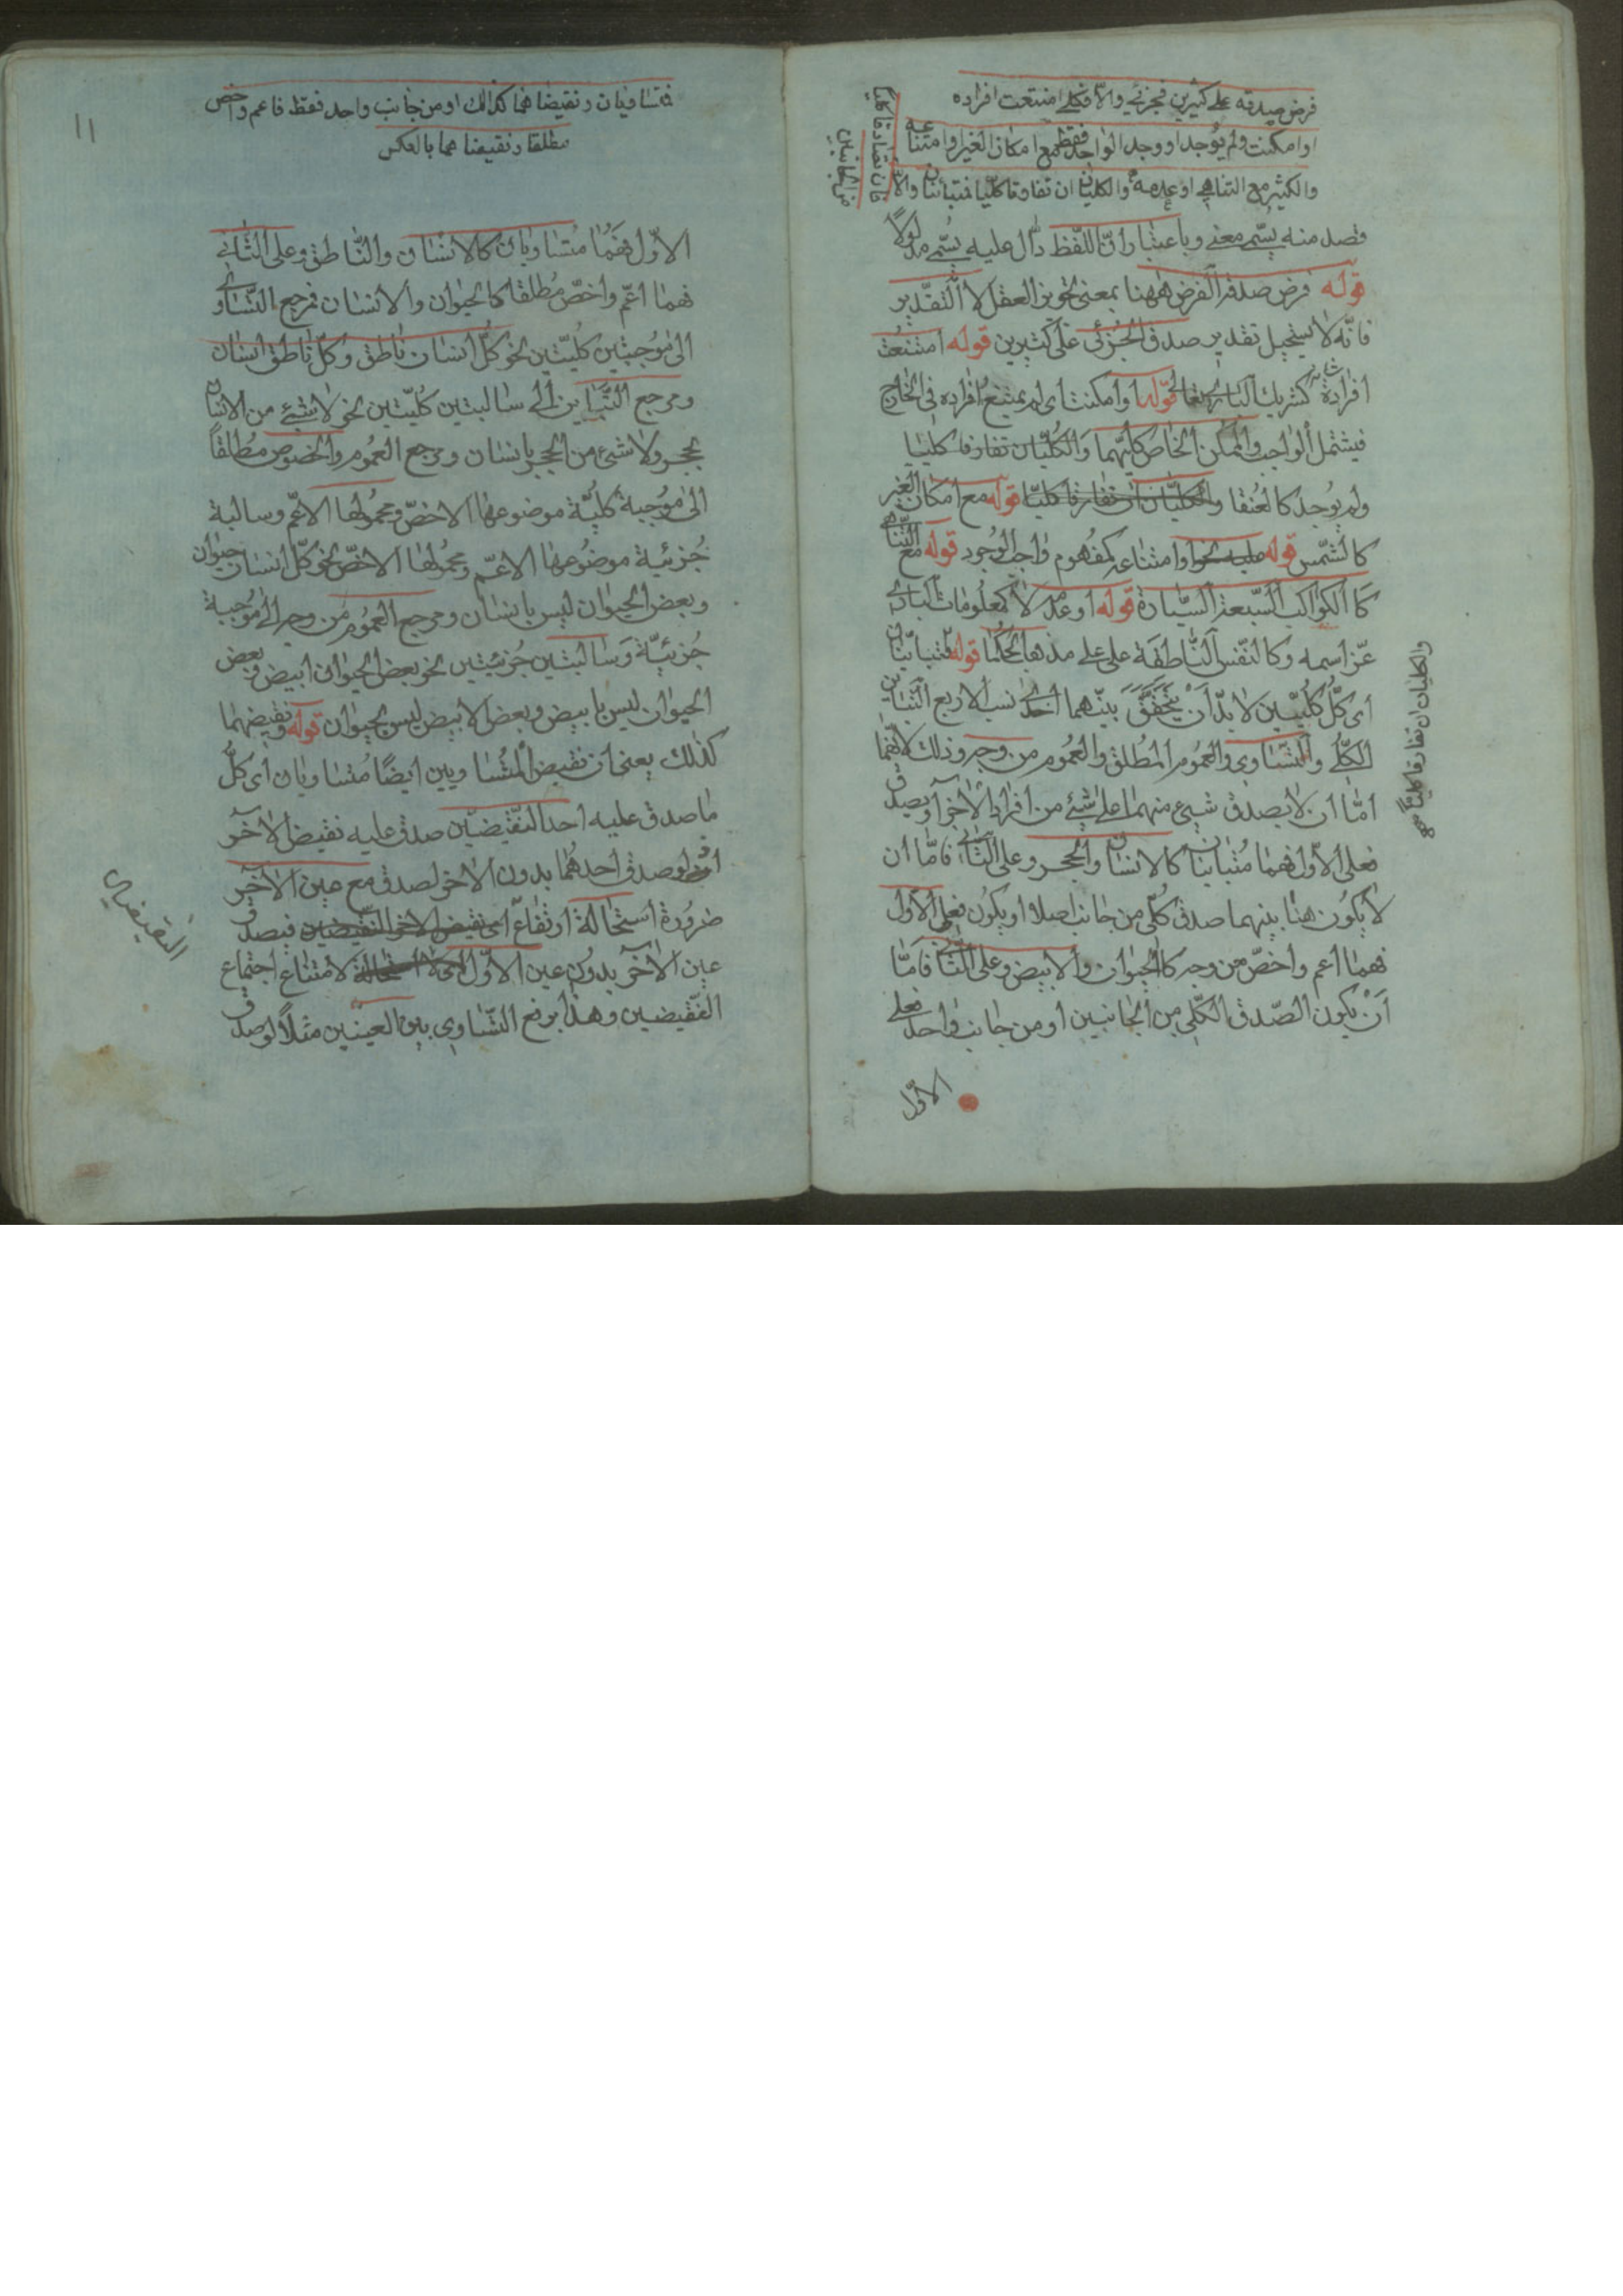 فرض صدقه على كثيرين فجزئي والا فكلي امتنعت افراده
او امكنت ولم يوجد او وجد الواحد فقط مع امكان الغير او امتناعه
والكثير مع التناهي او عدمه والكليان ان تفارقا كليا فمتبائنان والا
فان تصادقا كليا
من الجانبين
قصد منه يسمى معنى وباعتبار ان اللفظ دال عليه يسمى مدلولا
قوله فرض صدقه الفرض ههنا بمعنى تجويز العقل لا التقدير
فانه لا يستحيل تقدير صدق الجزئى على كثيرين قوله امتنعت
افراده كشريك البارى تعالى قوله او امكنت اى لم يمتنع افراده فى الخارج
فيشتمل الواجب والممكن الخاص كليهما والكليان تفارقا كليا
ولم يوجد كالعنقا والكليان ان تفارقا كليا قوله مع امكان الغير
كالشمس قوله او امتناعه كمفهوم واجب الوجود قوله مع التناهى
كالكواكب السبعة السيارة قوله او عدمه لا كمعلومات البارى
عز اسمه وكالنفس الناطقة على على مذهب الحكما قوله فمتباينان
اى كل كليين لا بد ان يتحقق بينهما احدى نسب الاربع التباين
الكلى والتساوى والعموم المطلق والعموم من وجه وذلك لانهما
اما ان لا يصدق شيئ منهما على شيئ من افراد الاخر او يصدق
فعلى الاول فهما متباينان كالانسان والحجر وعلى الثانى فاما ان
لا يكون هنا بينهما صدق كلى من جانب اصلا او يكون فعلى الاول
فهما اعم واخص من وجه كالحيوان والابيض وعلى الثانى فاما
ان يكون الصدق الكلى من الجانبين او من جانب واحد فعلى
الاول
والكليان ان تفارقا كليا
١١
فمتساويان ونقيضاهما كذالك او من جانب واحد فقط فاعم واخص
مطلقا ونقيضاهما بالعكس
الاول فهما متساويان كالانسان والناطق وعلى الثانى
فهما اعم واخص مطلقا كالحيوان والانسان فمرجع التساوى
الى موجبتين كليتين نحو كل انسان ناطق وكل ناطق انسان
ومرجع التباين الى سالبتين كليتين نحو لا شئ من الانسان
بحجر ولا شئ من الحجر بانسان ومرجع العموم والخصوص مطلقا
الى موجبة كلية موضوعها الاخص ومحمولها الاعم وسالبة
جزئية موضوعها الاعم ومحمولها الاخص نحو كل انسان حيوان
وبعض الحيوان ليس بانسان ومرجع العموم من وجه الى موجبة
جزئية وسالبتين جزئيتين نحو بعض الحيوان ابيض وبعض
الحيوان ليس بابيض وبعض الابيض ليس بحيوان قوله ونقيضهما
كذلك يعنى ان نقيض المتساويين ايضا متساويان اى كل
ما صدق عليه احد النقيضين صدق عليه نقيض الاخر
اذ لو صدق احدهما بدون الاخر لصدق مع عين الاخر
ضرورة استحالة ارتفاع اى نقيض الاخر النقيضين فيصدق
عين الاخر بدون عين الاول لامتناع اجتماع
النقيضين وهذا يرفع التساوى بين العينين مثلا لو صدق
النقيضان